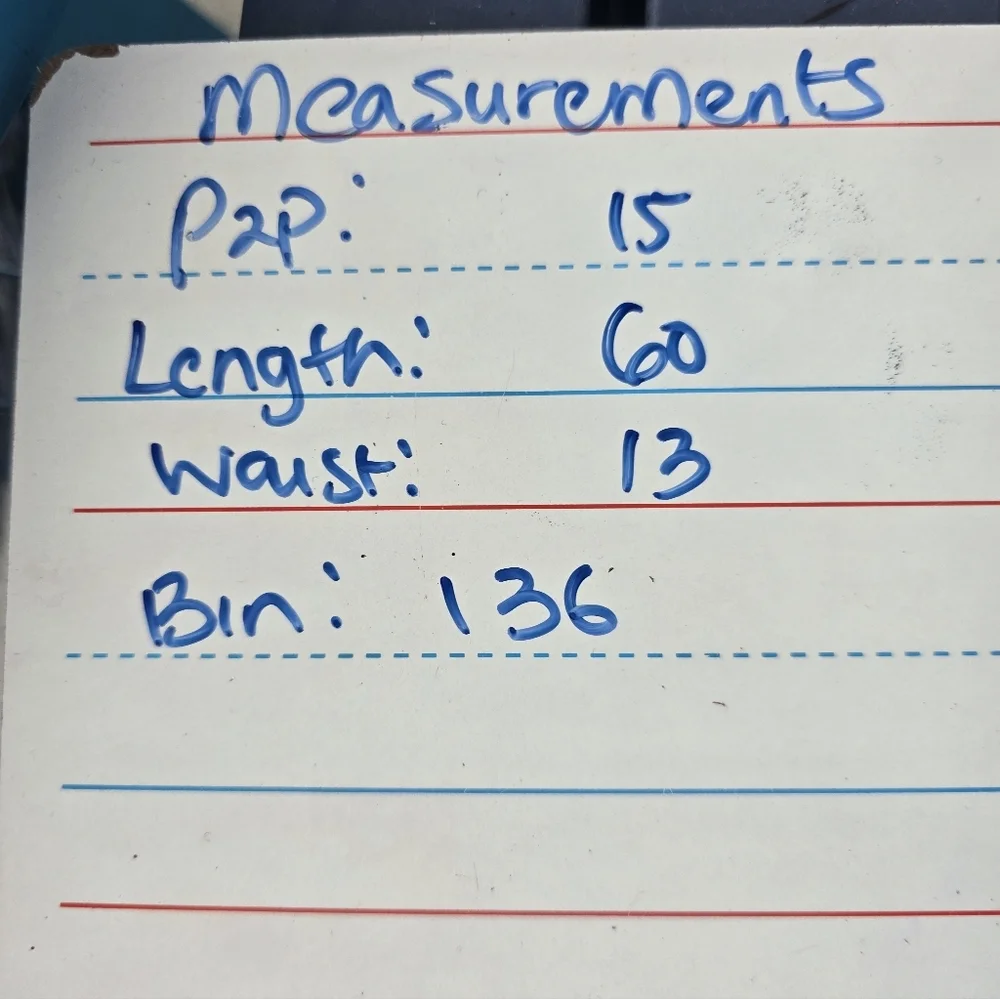 Measurements
P2P: 15
Length: 60
Waist: 13
Bin: 136